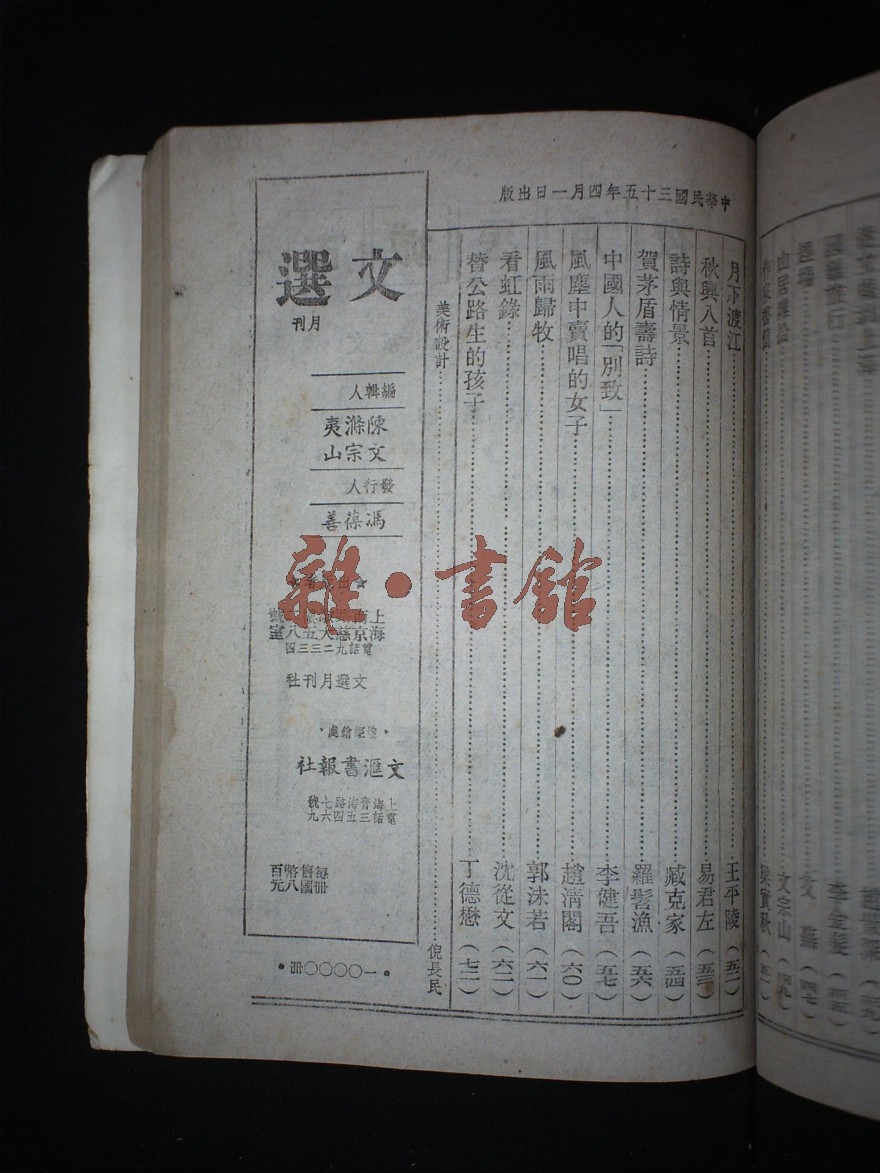 山居雜拾 文宗山（四九）
中華民國三十五年四月一日出版
月下渡江……王平陵（五二）
秋興八首……易君左（五三）
詩與情景……臧克家（五四）
賀茅盾壽詩……羅髫漁（五六）
中國人的「別致」……李健吾（五七）
風塵中賣唱的女子……趙清閣（六〇）
風雨歸牧……郭沫若（六一）
看虹錄……沈從文（六二）
替公路生的孩子……丁德懋（七二）
美術設計……倪長民
文選
月刊
編輯人
陳滌夷
文宗山
發行人
馮葆善
上海南京 慈 大 五八 室
電話九二三三四
文選月刊社
·總經銷處·
文滙書報社
上海青海路七號
電話三五四六九
每冊售國幣八百元
·一〇〇〇〇冊·
雜·書館